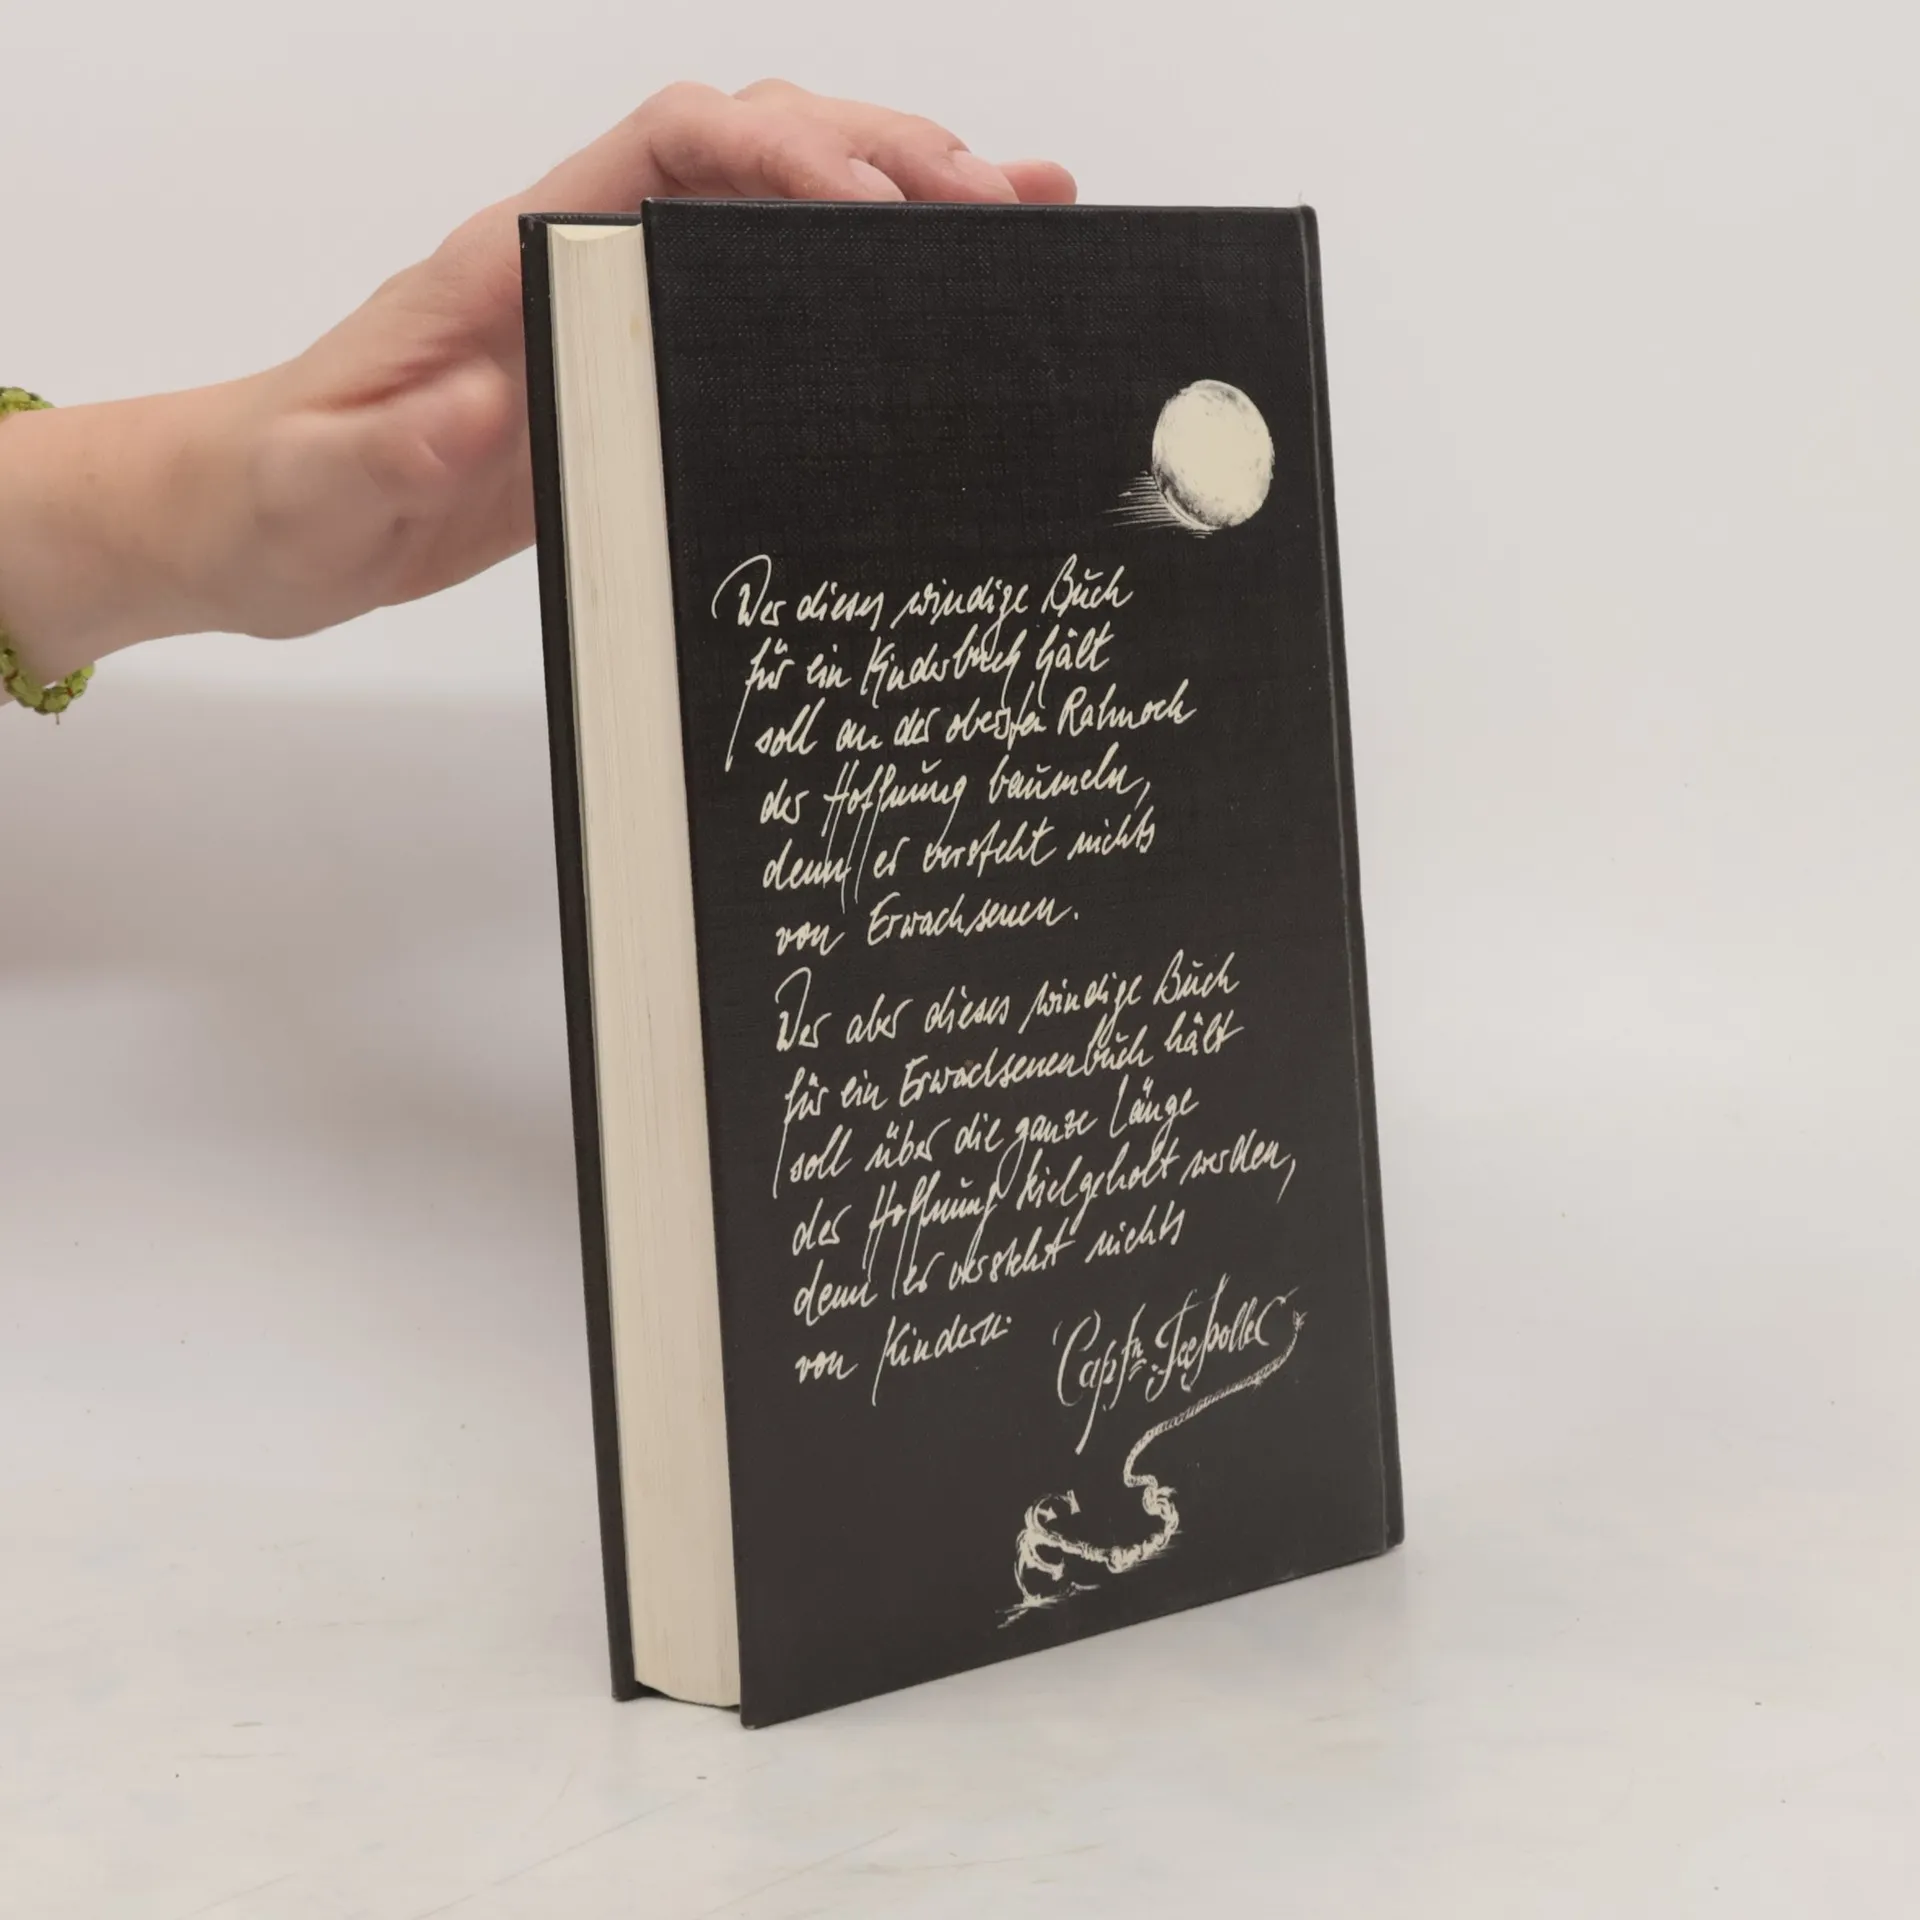 Wer dieses windige Buch
für ein Kinderbuch hält
soll an der obersten Rahnock
der Hoffnung baumeln,
denn er versteht nichts
von Erwachsenen.
Wer aber dieses windige Buch
für ein Erwachsenenbuch hält
soll über die ganze Länge
der Hoffnung kielgeholt werden,
denn er versteht nichts
von Kindern.
Captn.